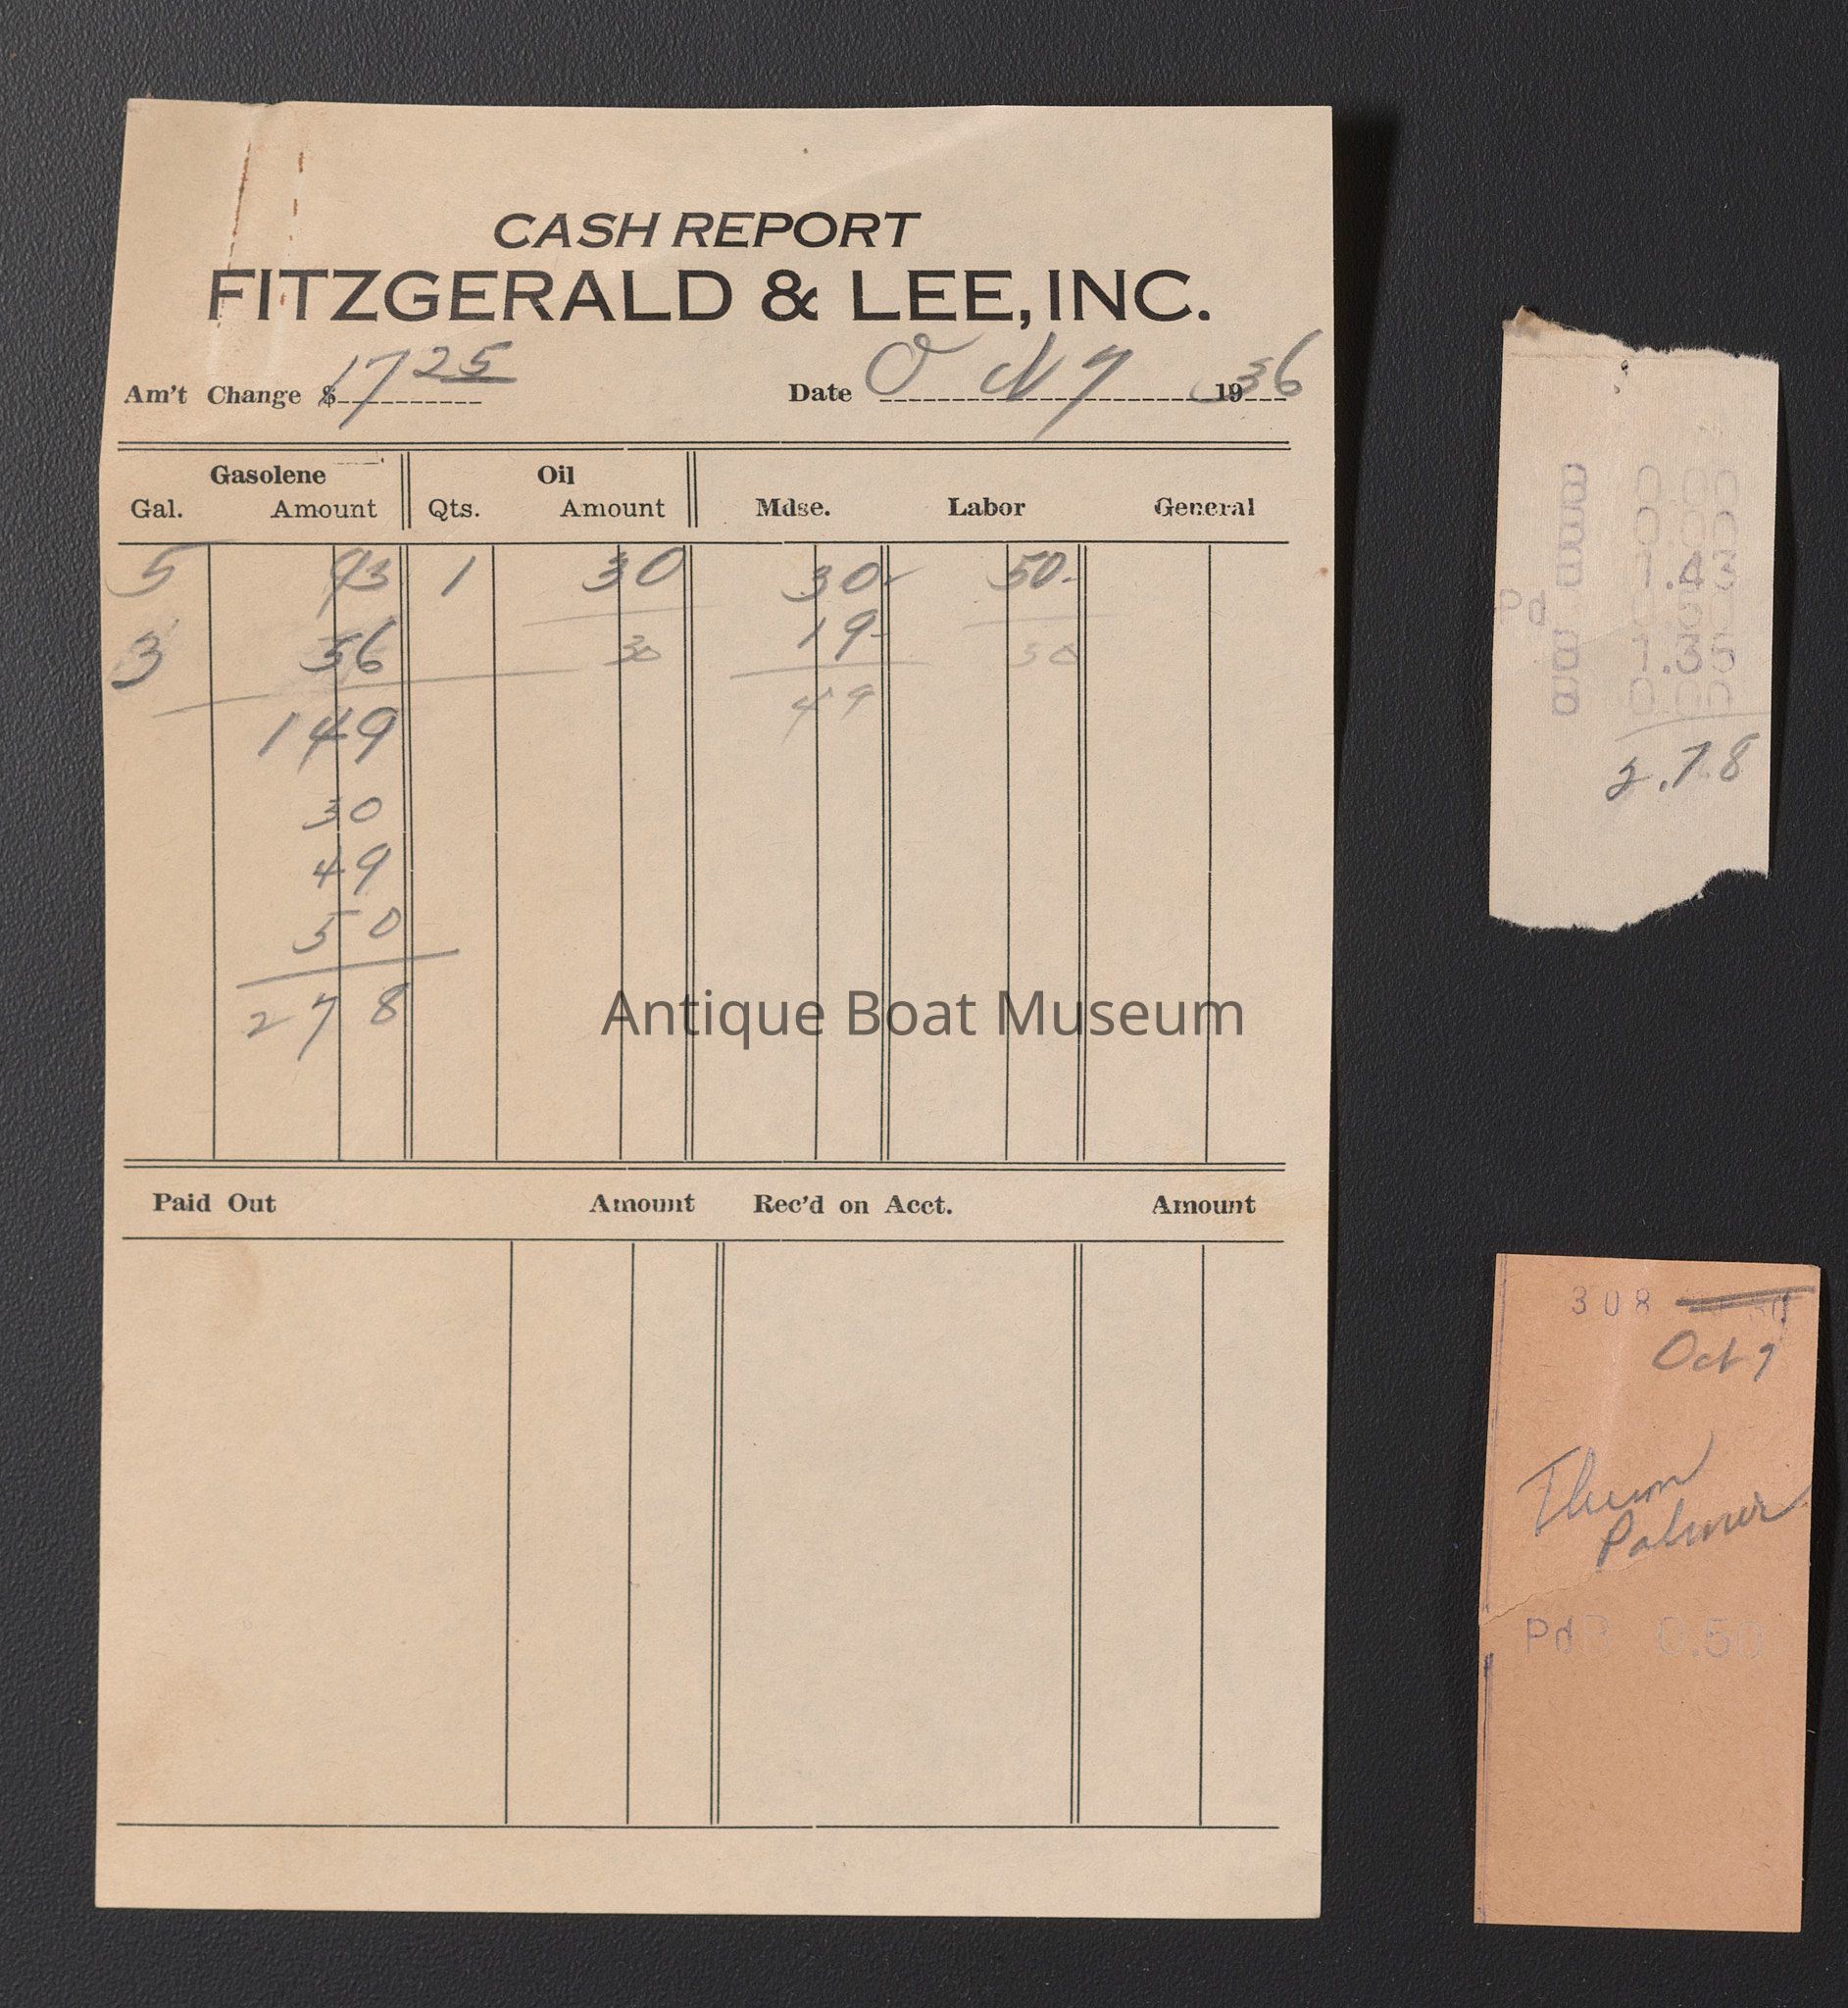 CASH REPORT
FITZGERALD & LEE, INC.
Am't Change $ 17 25 Date Oct 7 1936
Gasolene Oil
Gal. Amount Qts. Amount Mdse. Labor General
5 93 1 30 30 50
3 56 30 19 50
149 49
30
49
50
278
Antique Boat Museum
Paid Out Amount Rec'd on Acct. Amount
0.00
0.00
1.43
Pd
1.35
0.00
2.78
308
Oct 7
Palmer
Pd 0.50